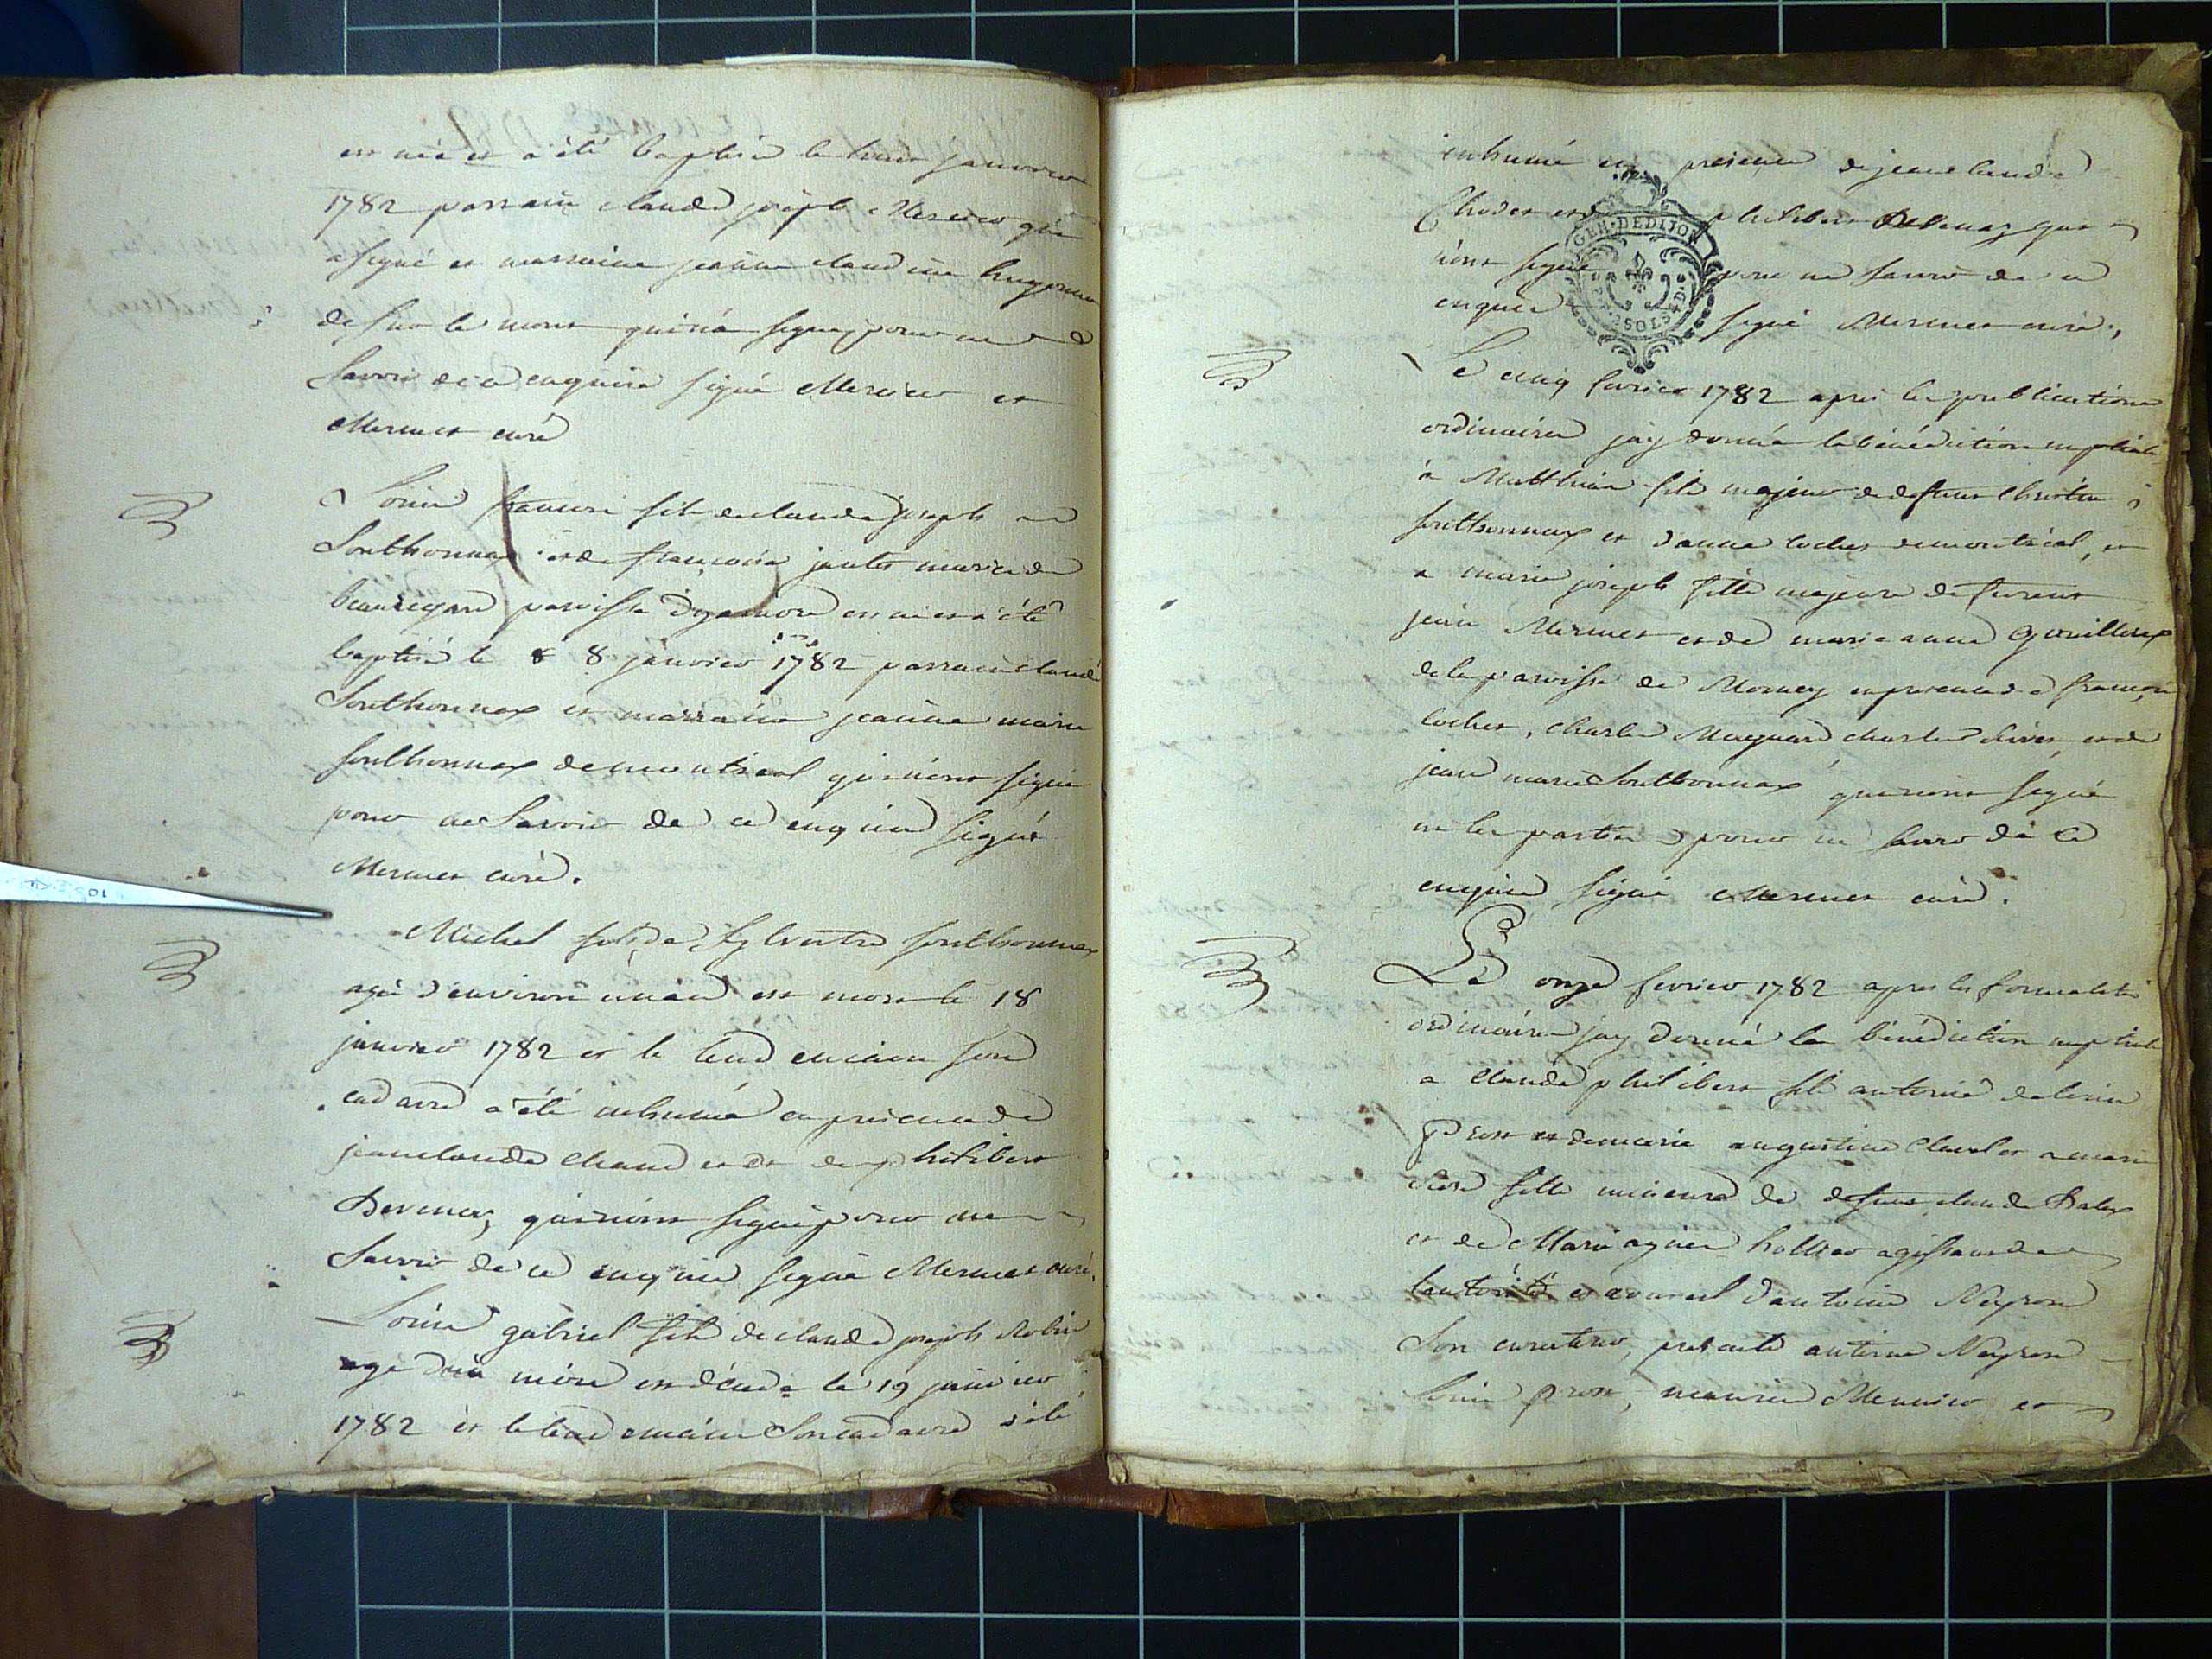 est né et a été baptisé le trois janvier
1782 parrain claude joseph Mercier qui
a signé et marraine jeanne claudine
de sur le mont qui n'a signé pour ne
savoir de ce enquise signé Mercier et
Mermet curé
Louis francois fils de claude joseph
Sonthonnax et de francoise jantet mariés de
beauregard paroisse d'oyonnax est né et a été
baptisé le 8 janvier 1782 parrain claude
Sonthonnax et marraine jeanne marie
sonthonnax de montreal qui n'ont signé
pour ne savoir de ce enquis signé
Mermet curé.
Michel fils de sylvestre sonthonnax
agé d'environ un an est mort le 18
janvier 1782 et le lendemain son
cadavre a été inhumé en presence de
jean claude et de philibert
qui n'ont signé pour ne
savoir de ce enquis signé Mermet curé.
Louis gabriel fils de claude joseph Robin
agé mois est décédé le 19 janvier
1782 et le lendemain son cadavre a été
inhumé en presence de jean claude
et philibert qui
n'ont signé pour ne savoir de ce
enquis signé Mermet curé.
Le cinq fevrier 1782 apres les publications
ordinaires jay donné la bénédiction nuptiale
a Matthieu fils majeur de defunt
sonthonnax et d'anne cochet de montréal, et
a marie joseph fille majeure de
jean Mermet et de marie anne
de la paroisse de Mornay en presence de francois
cochet, charles charles et de
jean marie Sonthonnax qui n'ont signé
ni les parties pour ne savoir de ce
enquis signé Mermet curé.
Le onze fevrier 1782 apres les formalités
ordinaires jay donné la bénédiction nuptiale
a claude philibert fils autorisé de louis
Prost et de marie augustine et a marie
fille mineure de defunt claude
et de Marie agissant de
lautorité et conseil d'antoine Neyron
son curateur, présents antoine Neyron
louis prost, et